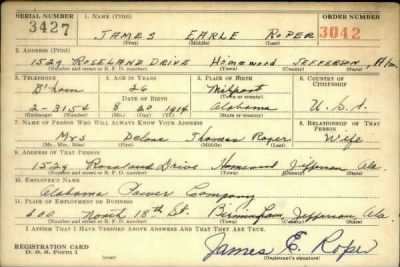 SERIAL NUMBER 1. NAME (Print) ORDER NUMBER
3427 JAMES EARLE ROPER 3042
(First) (Middle) (Last)
2. ADDRESS (Print)
1529 ROSELAND DRIVE HOMEWOOD JEFFERSON, Ala.
(Number and street or R. F. D. number) (Town) (County) (State)
3. TELEPHONE 4. AGE IN YEARS 5. PLACE OF BIRTH 6. COUNTRY OF CITIZENSHIP
B'ham 26 Millport
DATE OF BIRTH
2-3154 8 20 1914 Alabama U.S.A.
(Exchange) (Number) (Mo.) (Day) (Yr.) (State or country)
7. NAME OF PERSON WHO WILL ALWAYS KNOW YOUR ADDRESS 8. RELATIONSHIP OF THAT PERSON
Mrs Thomas Roper Wife
(Mr., Mrs., Miss) (First) (Middle) (Last)
9. ADDRESS OF THAT PERSON
1529 Roseland Drive Homewood Jefferson Ala.
(Number and street or R. F. D. number) (Town) (County) (State)
10. EMPLOYER'S NAME
Alabama Power Company
11. PLACE OF EMPLOYMENT OR BUSINESS
600 North 18th St. Birmingham, Jefferson, Ala.
(Number and street or R. F. D. number) (Town) (County) (State)
I AFFIRM THAT I HAVE VERIFIED ABOVE ANSWERS AND THAT THEY ARE TRUE.
REGISTRATION CARD James E. Roper
D. S. S. Form 1 (over) (Registrant's signature)